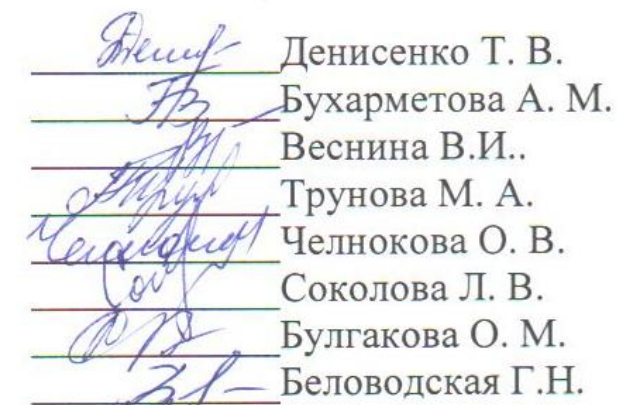 Денисенко Т. В.
Бухарметова А. М.
Веснина В.И..
Трунова М. А.
Челнокова О. В.
Соколова Л. В.
Булгакова О. М.
Беловодская Г.Н.